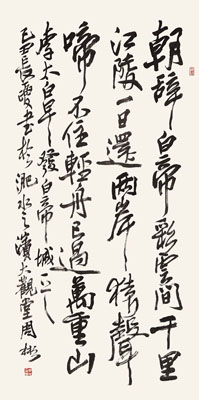 朝辞白帝彩雲間千里
江陵一日還兩岸猿聲
啼不住輕舟已過萬重山
李太白早發白帝城一
乙酉長夏書於淝水之濱大觀堂周彬